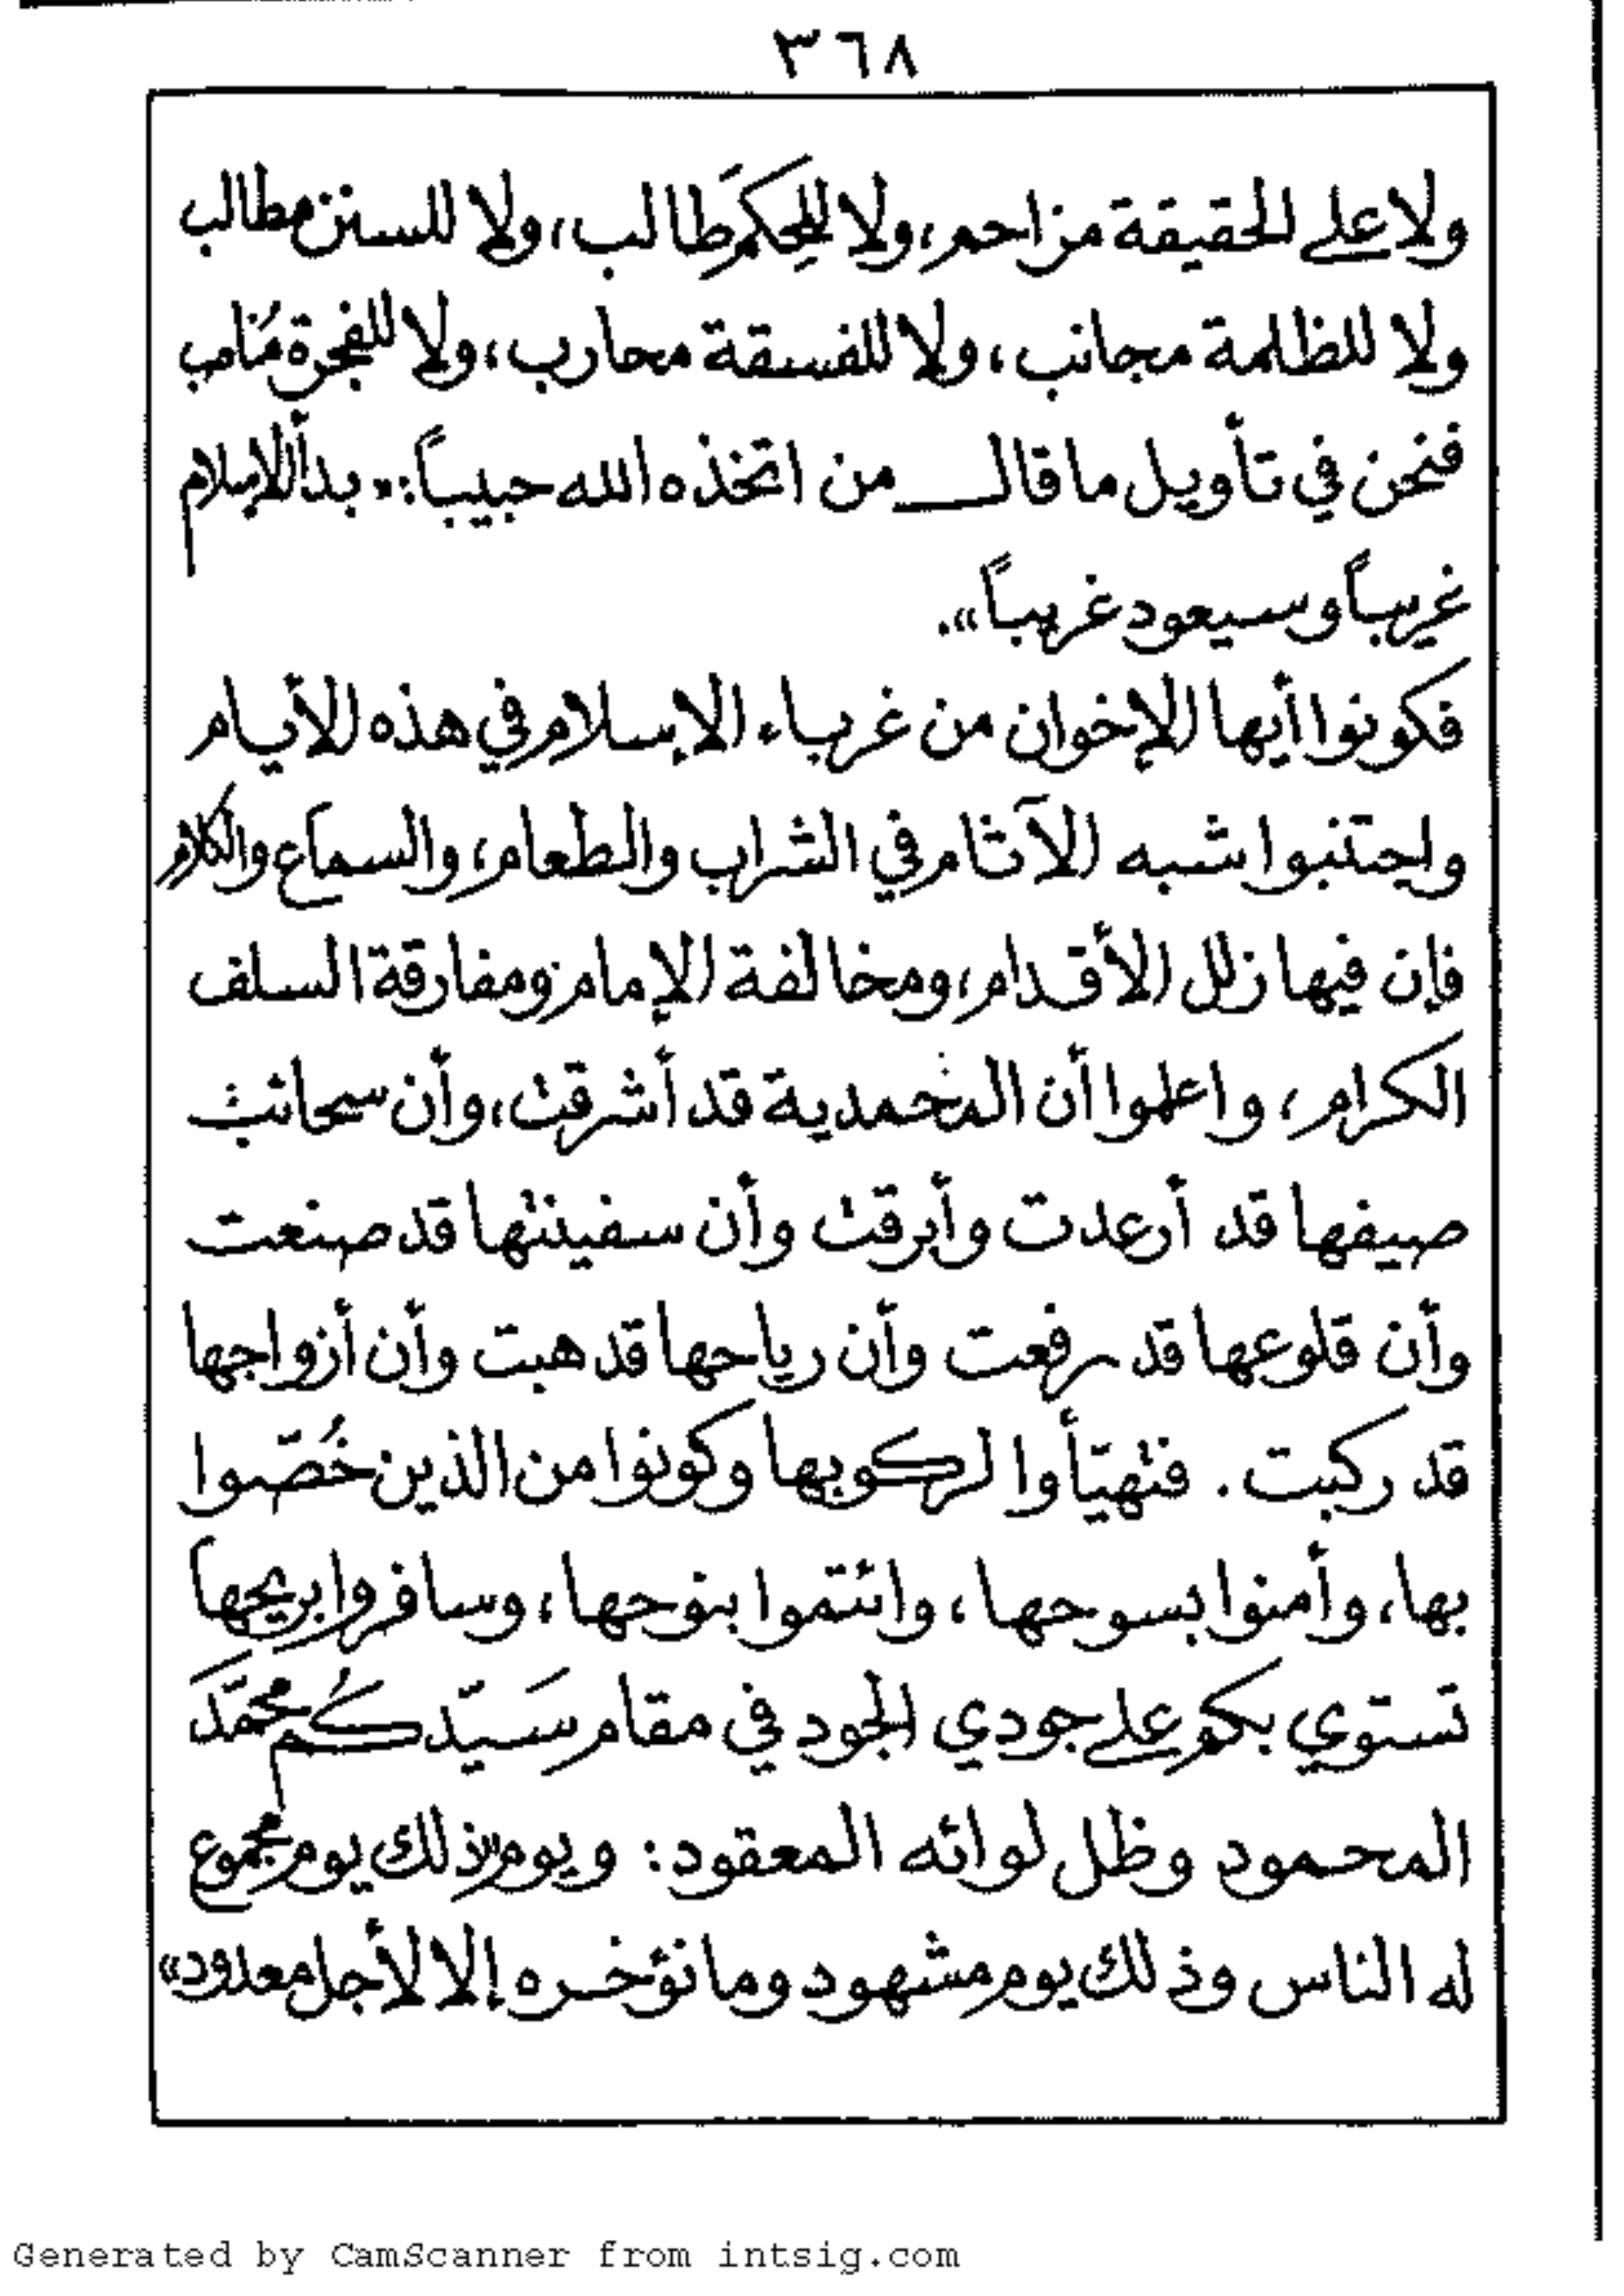 ٣٦٨
ولا على الحقيقة مزاحم، ولا للحِكَم طالب، ولا للسنن مطالب
ولا للظلمة مجانب، ولا للفسقة محارب، ولا للفجرة مُناصب
فنحن في تأويل ما قال من اتخذه الله حبيباً: «بدأ الإسلام
غريباً وسيعود غريباً».
فكونوا أيها الإخوان من غرباء الإسلام في هذه الأيام
واجتنبوا شبه الآثام في الشراب والطعام، والسماع والكلام
فإن فيها زلل الأقدام، ومخالفة الإمام ومفارقة السلف
الكرام، واعلموا أن المحمدية قد أشرقت، وأن سحائب
صيفها قد أرعدت وأبرقت وأن سفينتها قد صنعت
وأن قلوعها قد رفعت وأن رياحها قد هبت وأن أزواجها
قد ركبت. فتهيّأوا لركوبها وكونوا من الذين خُصّوا
بها، وأمنوا بسوحها، وائتموا بنوحها، وسافروا بريحها
تستوي بكم على جودي الجود في مقام سَيّدكُم محمّد
المحمود وظل لوائه المعقود: ويوم «ذلك يوم مجموع
له الناس وذلك يوم مشهود وما نؤخره إلا لأجل معدود»
Generated by CamScanner from intsig.com